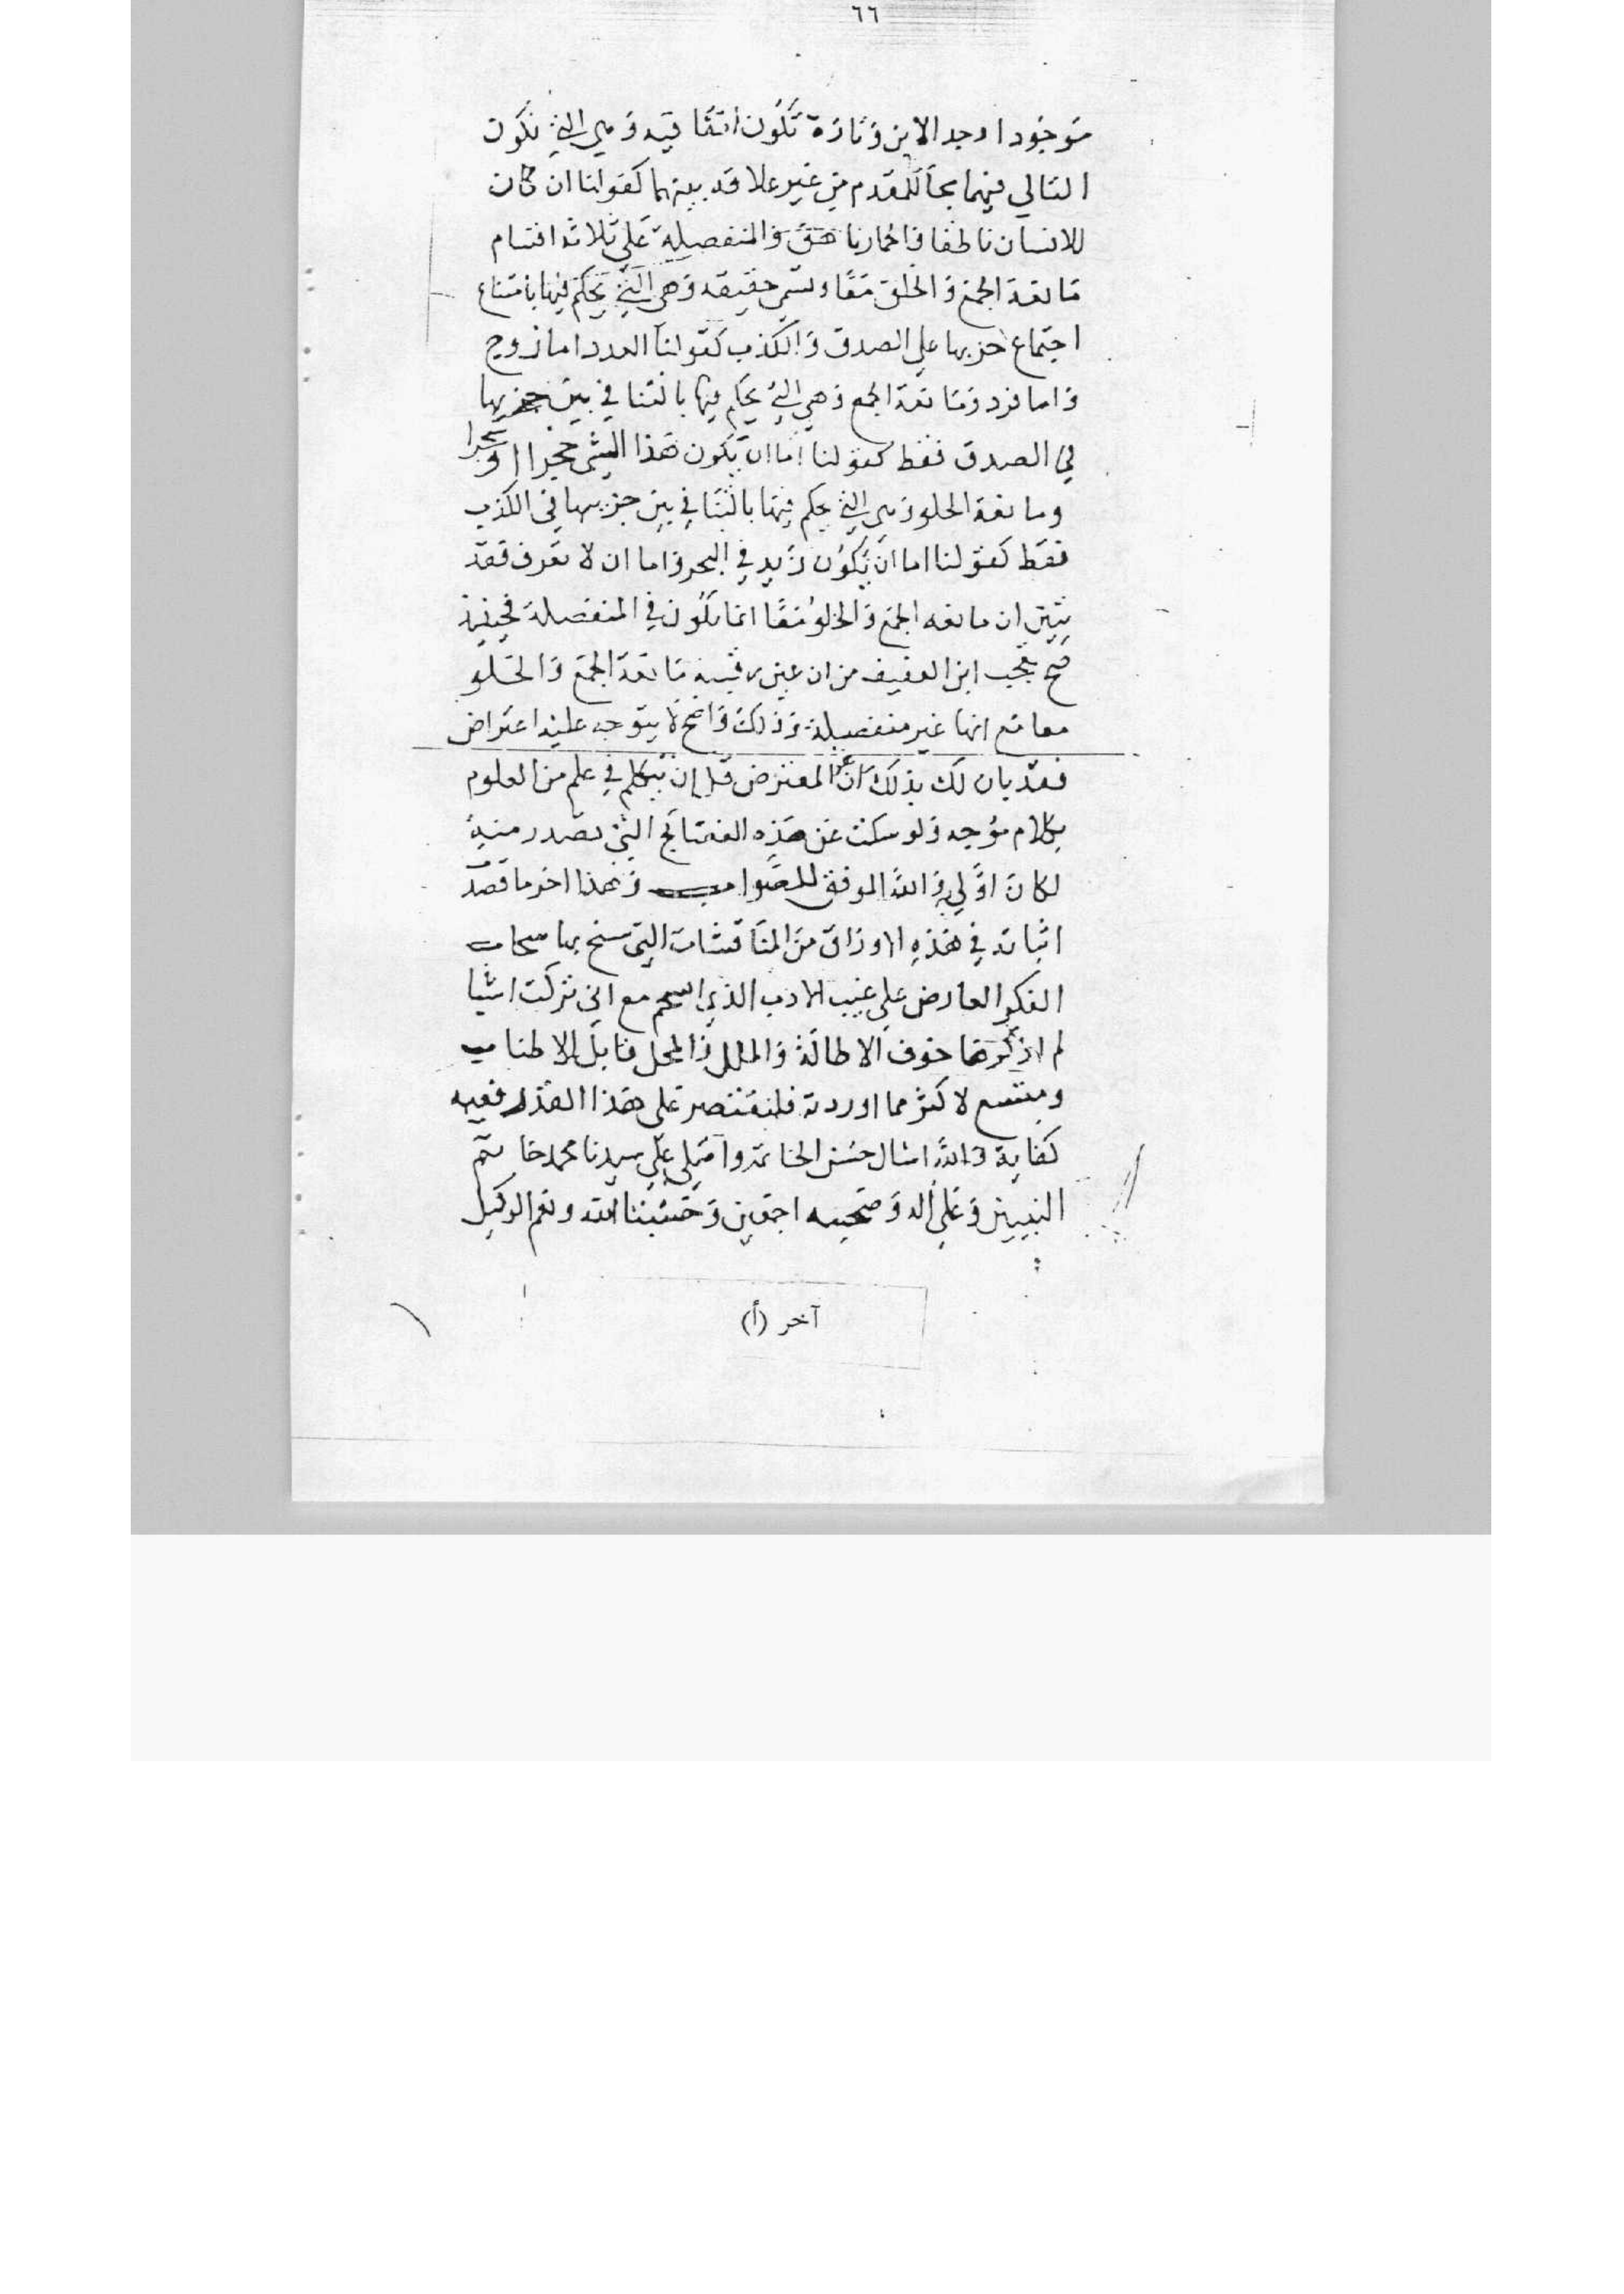 ٦٦
موجودا وجد الابن وتارة تكون اتفاقية وهي التي تكون
التالي فيهما للمقدم من غير علاقة بينهما كقولنا ان كان
الانسان ناطقا فالحمار ناهق والمنفصلة على ثلاثة اقسام
مانعة الجمع والخلو معا وتسمى حقيقة وهي التي يحكم فيها بامتناع
اجتماع جزيها على الصدق والكذب كقولنا العدد اما زوج
واما فرد ومانعة الجمع وهي التي يحكم فيها بالتنافي بين جزيها
في الصدق فقط كقولنا اما ان يكون هذا الشي حجرا او شجرا
ومانعة الخلو وهي التي يحكم فيها بالتنافي بين جزيها في الكذب
فقط كقولنا اما ان يكون زيد في البحر واما ان لا يغرق فقد
تبين ان مانعة الجمع والخلو معا انما تكون في المنفصلة فحينئذ
صح تعجب ابن العفيف من ان مانعة الجمع والخلو
معا مع انها غير منفصلة وذلك واضح لا يتوجه عليه اعتراض
فقد بان لك بذلك ان المعترض قل ان يتكلم في علم من العلوم
بكلام موجه ولو سكت عن هذه التي تصدر منه
لكان اولى والله الموفق للصواب وهذا اخر ما قصد
اثباته في هذه الاوراق من المناقشات التي سنح بها سحاب
الفكر العارض على غيب الادب الذي مع اني تركت اشيا
لم اذكرها خوف الاطالة والملل والمحل قابل للاطناب
ومتسع لاكثر مما اوردته فلنقتصر على هذا القدر ففيه
كفاية والله اسال حسن الخاتمة واصلي على سيدنا محمد خاتم
النبيين وعلى اله وصحبه اجمعين وحسبنا الله ونعم الوكيل
آخر (أ)